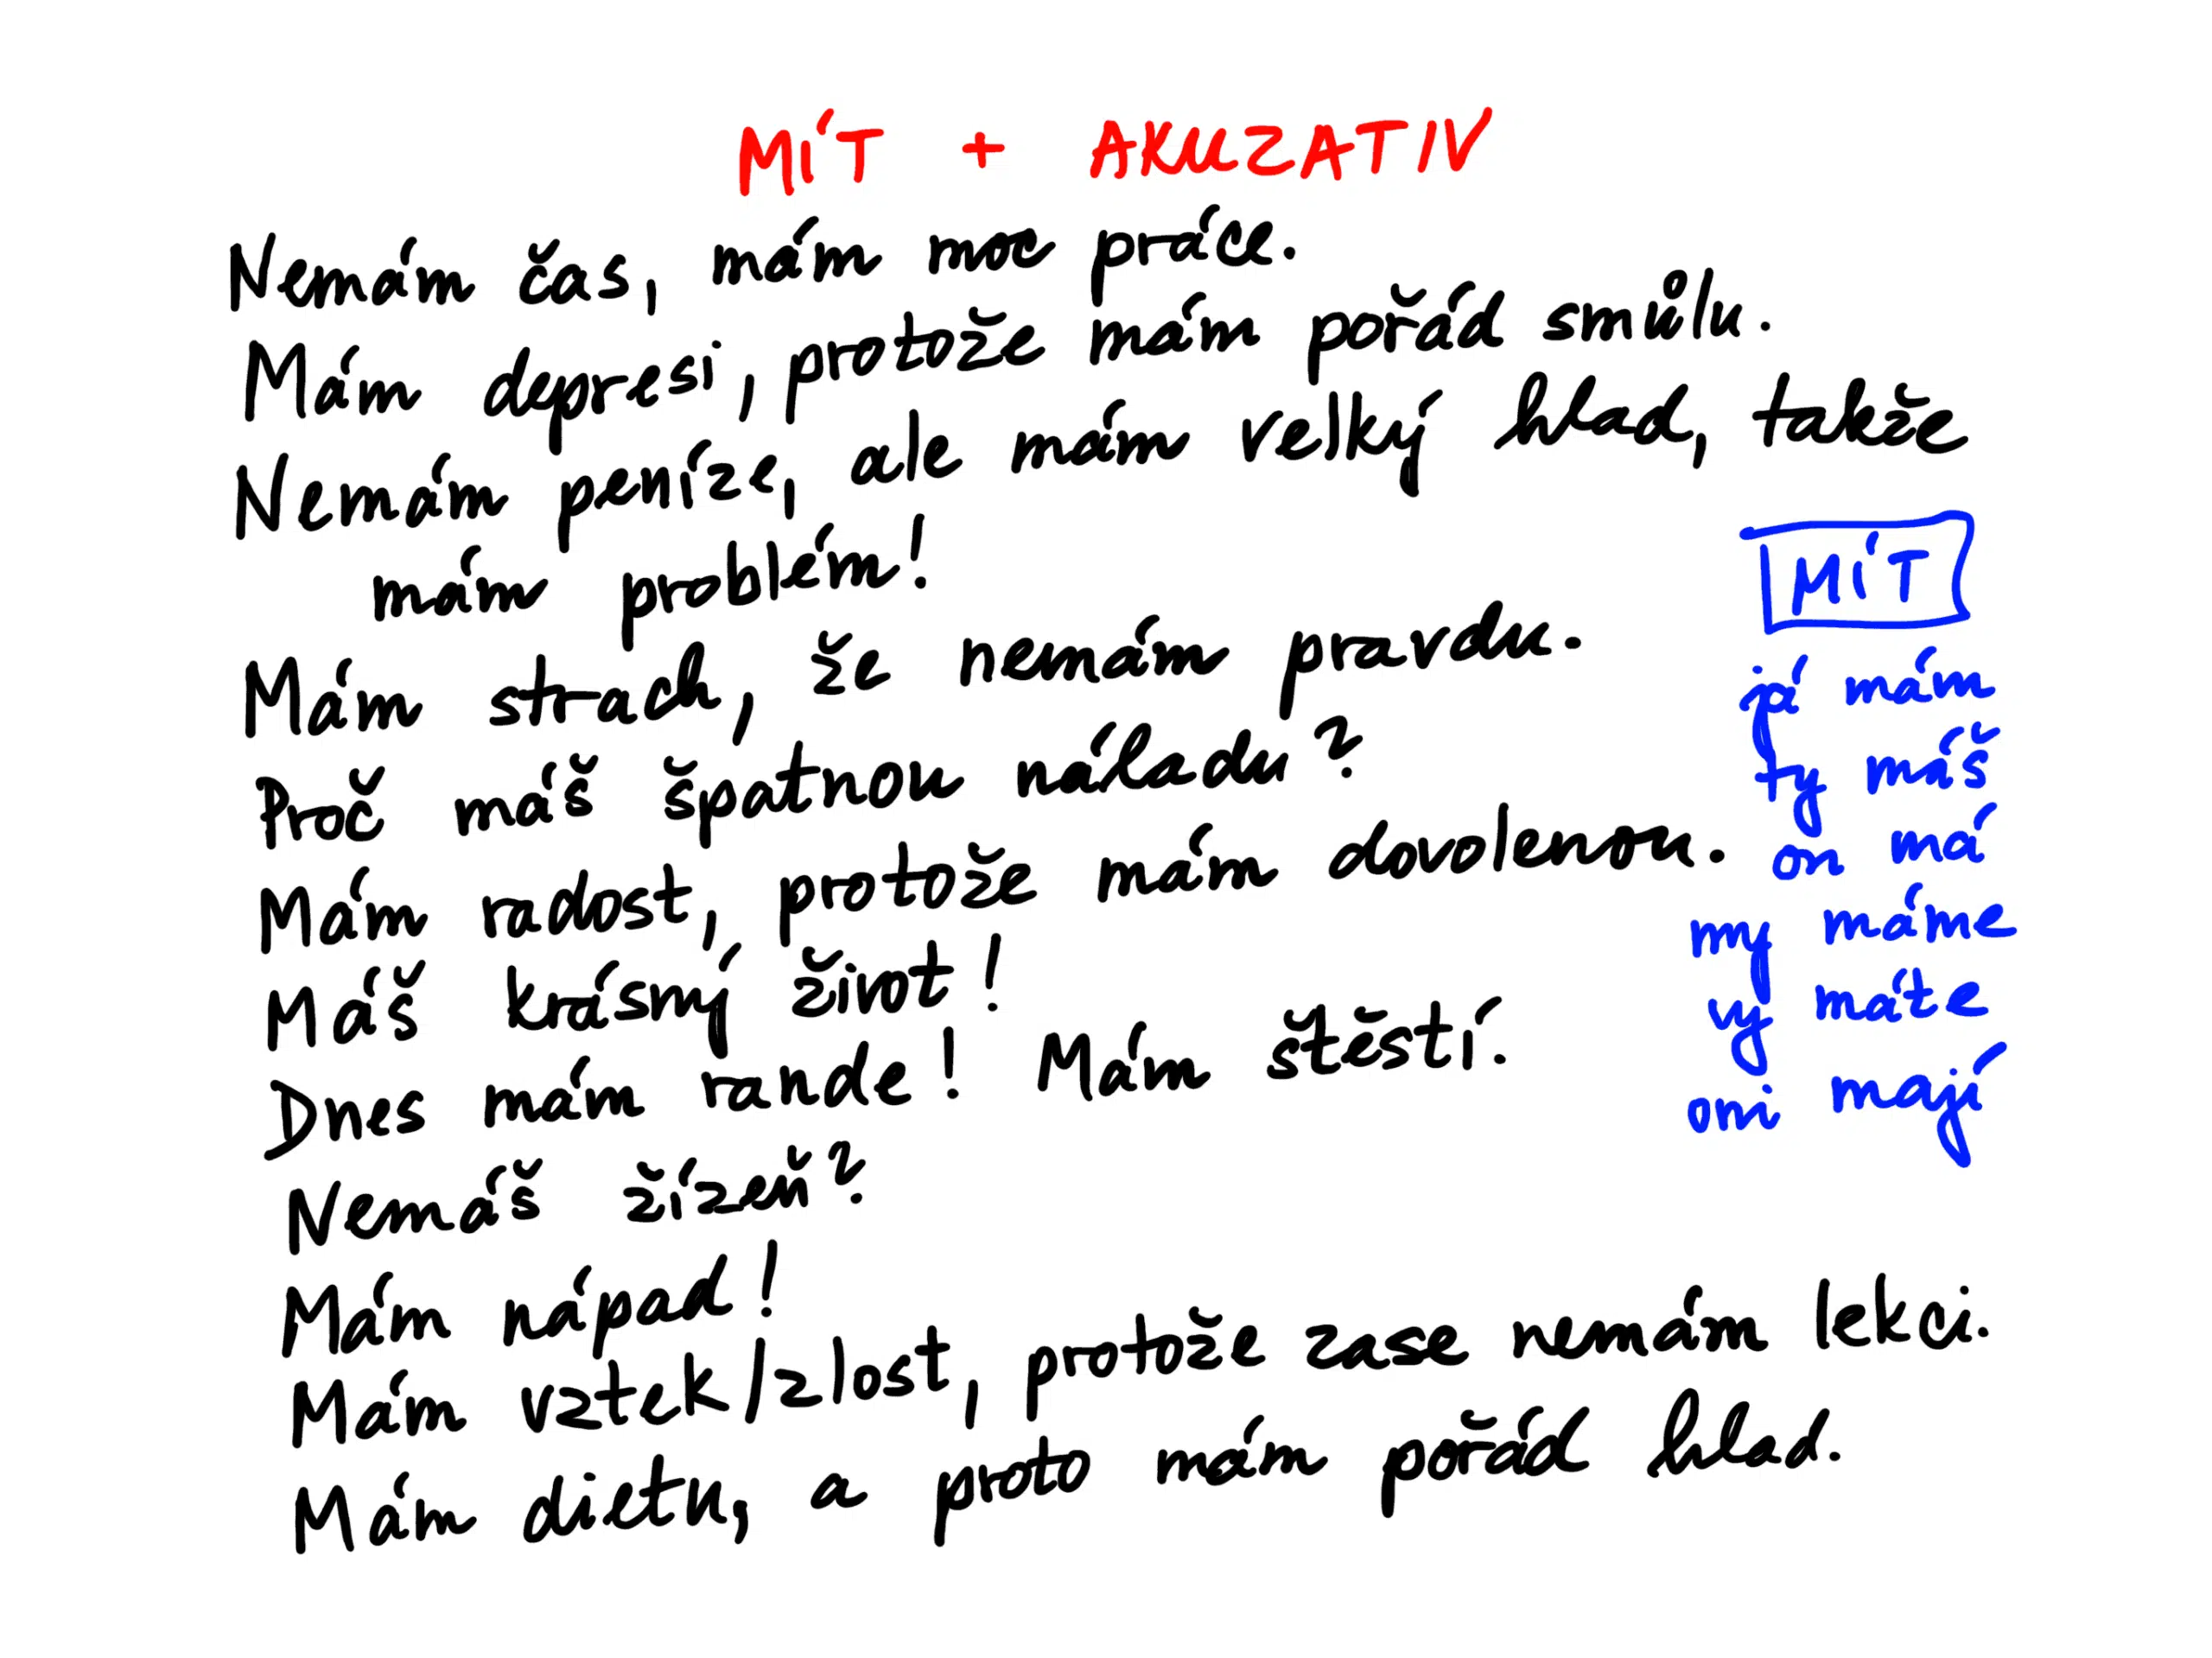 MÍT + AKUZATIV
Nemám čas, mám moc práce.
Mám depresi, protože mám pořád smůlu.
Nemám peníze, ale mám velký hlad, takže
mám problém!
Mám strach, že nemám pravdu.
Proč máš špatnou náladu?
Mám radost, protože mám dovolenou.
Máš krásný život!
Dnes mám rande! Mám štěstí.
Nemáš žízeň?
Mám nápad!
Mám vztek/zlost, protože zase nemám lekci.
Mám dietu, a proto mám pořád hlad.
MÍT
já mám
ty máš
on má
my máme
vy máte
oni mají